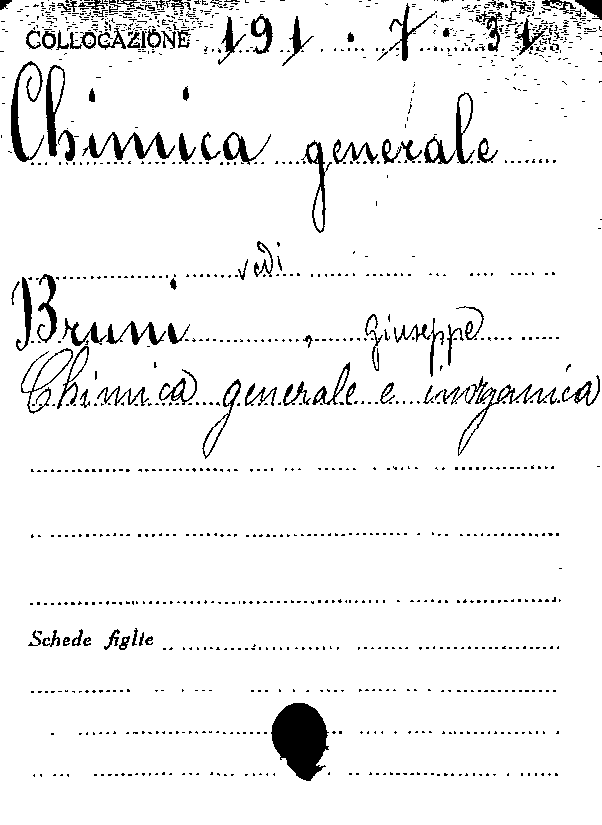 COLLOCAZIONE 191.7.31
Chimica generale
vedi
Bruni, Giuseppe
Chimica generale e inorganica
Schede figlie